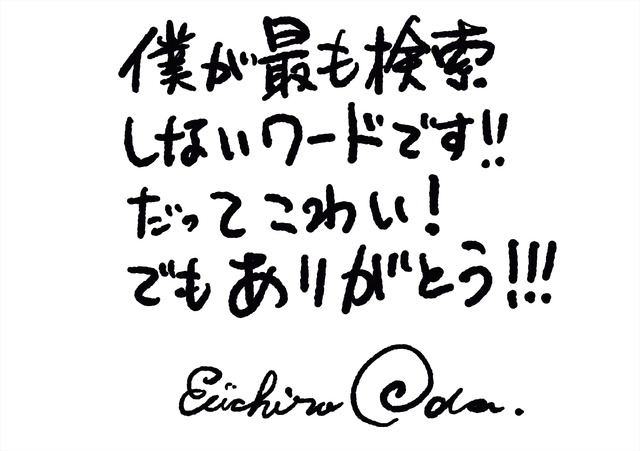 僕が最も検索
しないワードです!!
だってこわい!
でもありがとう!!!
Eiichiro Oda.